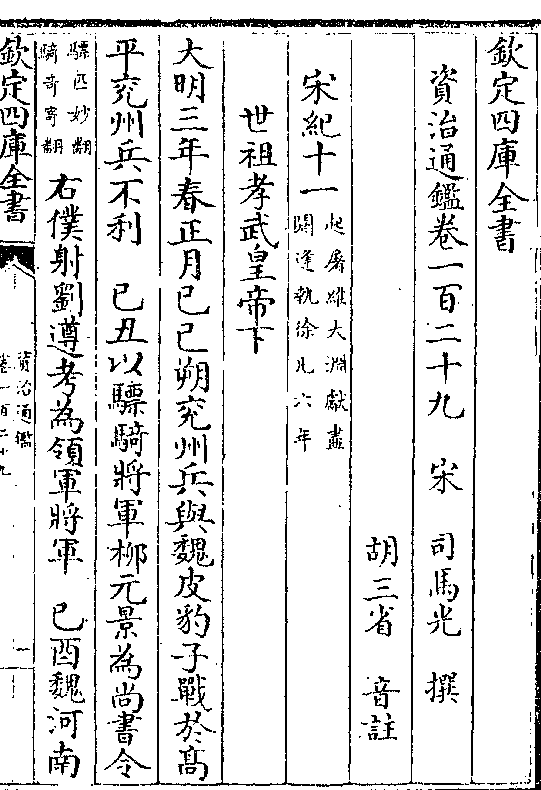 欽定四庫全書
資治通鑑卷一百二十九　宋　司馬光　撰
胡三省　音註
宋紀十一起屠維大淵獻盡閼逢執徐凡六年
世祖孝武皇帝下
大明三年春正月己巳朔兖州兵與魏皮豹子戰於髙
平兖州兵不利　己丑以驃騎將軍柳元景為尚書令
驃匹妙翻騎奇寄翻右僕射劉遵考為領軍將軍　己酉魏河南
欽定四庫全書
資治通鑑
卷一百二十九
一